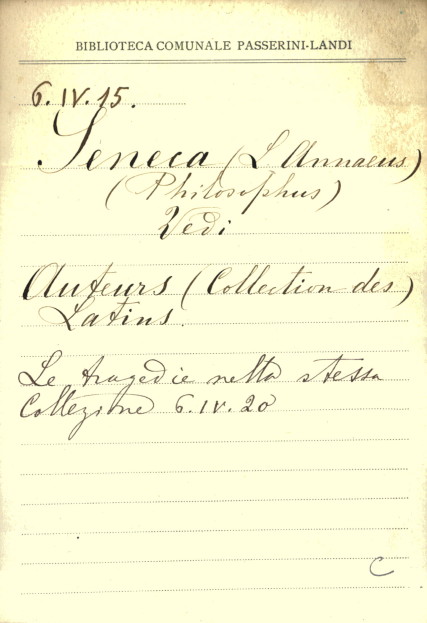 BIBLIOTECA COMUNALE PASSERINI-LANDI
6.IV.15.
Seneca (L. Annaeus)
(Philosophus)
Vedi
Auteurs (Collection des)
Latins.
Le tragedie nella stessa
Collezione 6.IV.20
C